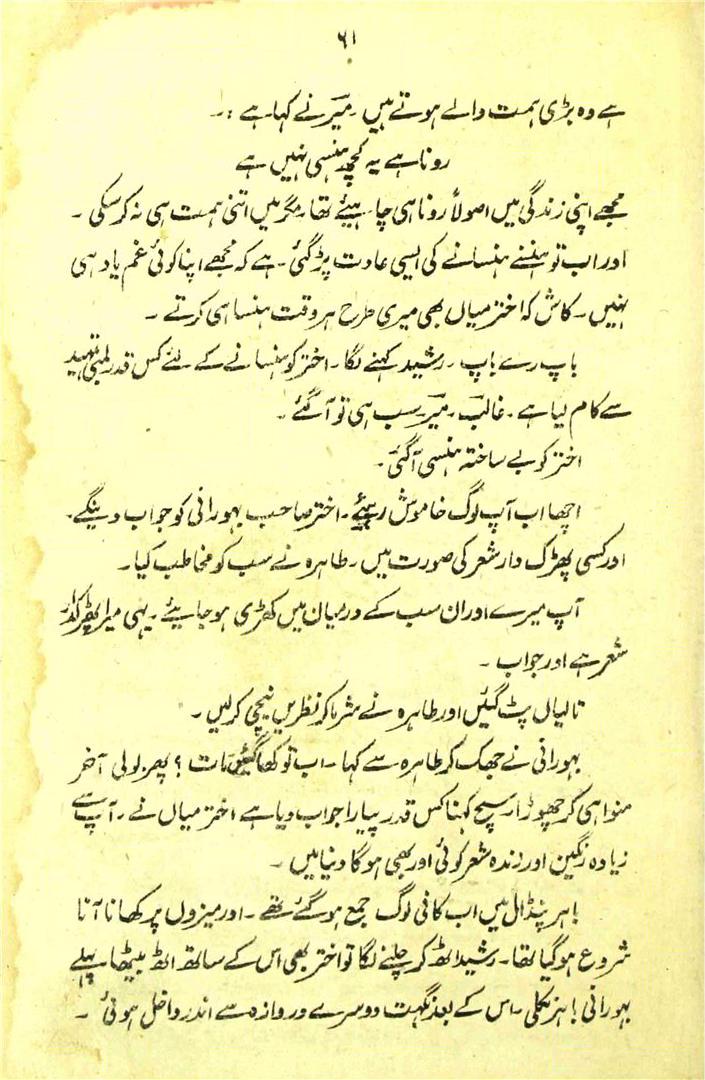 ۶۱
ہے وہ بڑی ہمت والے ہوتے ہیں۔ میرؔ نے کہا ہے :۔
رونا ہے یہ کچھ ہنسی نہیں ہے
مجھے اپنی زندگی میں اصولاً رونا ہی چاہیئے تھا۔ مگر میں اتنی ہمت ہی نہ کر سکی ۔
اور اب تو ہنسنے ہنسانے کی ایسی عادت پڑ گئی ۔ ہے کہ مجھے اپنا کوئی غم یاد ہی
نہیں ۔ کاش کہ اختر میاں بھی میری طرح ہر وقت ہنسا ہی کرتے ۔
باپ رے باپ ۔ رشید کہنے لگا ۔ اختر کو ہنسانے کے لئے کس قدر لمبی تمہید
سے کام لیا ہے ۔ غالبؔ ۔ میرؔ سب ہی تو آگئے ۔
اختر کو بے ساختہ ہنسی آگئی ۔
اچھا اب آپ لوگ خاموش رہیئے ۔ اختر صاحب بہورانی کو جواب دینگے ۔
اور کسی پھڑک دار شعر کی صورت میں ۔ طاہرہ نے سب کو مخاطب کیا ۔
آپ میرے اور ان سب کے درمیان میں کھڑی ہو جایئے ۔ یہی میرا پھڑکدار
شعر ہے اور جواب ۔
تالیاں پٹ گئیں اور طاہرہ نے شرما کر نظریں نیچی کر لیں ۔
بہورانی نے جھک کر طاہرہ سے کہا ۔ اب تو کھا گئیں مات ؟ پھر بولی آخر
منوا ہی کر چھوڑا ۔ سچ کہنا کس قدر پیارا جواب دیا ہے اختر میاں نے ۔ آپ سے
زیادہ رنگین اور زندہ شعر کوئی اور بھی ہو گا دنیا میں ۔
باہر پنڈال میں اب کافی لوگ جمع ہو گئے تھے ۔ اور میزوں پر کھانا آنا
شروع ہو گیا تھا ۔ رشید اٹھ کر چلنے لگا تو اختر بھی اس کے ساتھ اٹھ بیٹھا پہلے
بہورانی باہر نکلی ۔ اس کے بعد نگہت دوسرے دروازہ سے اندر داخل ہوئی ۔